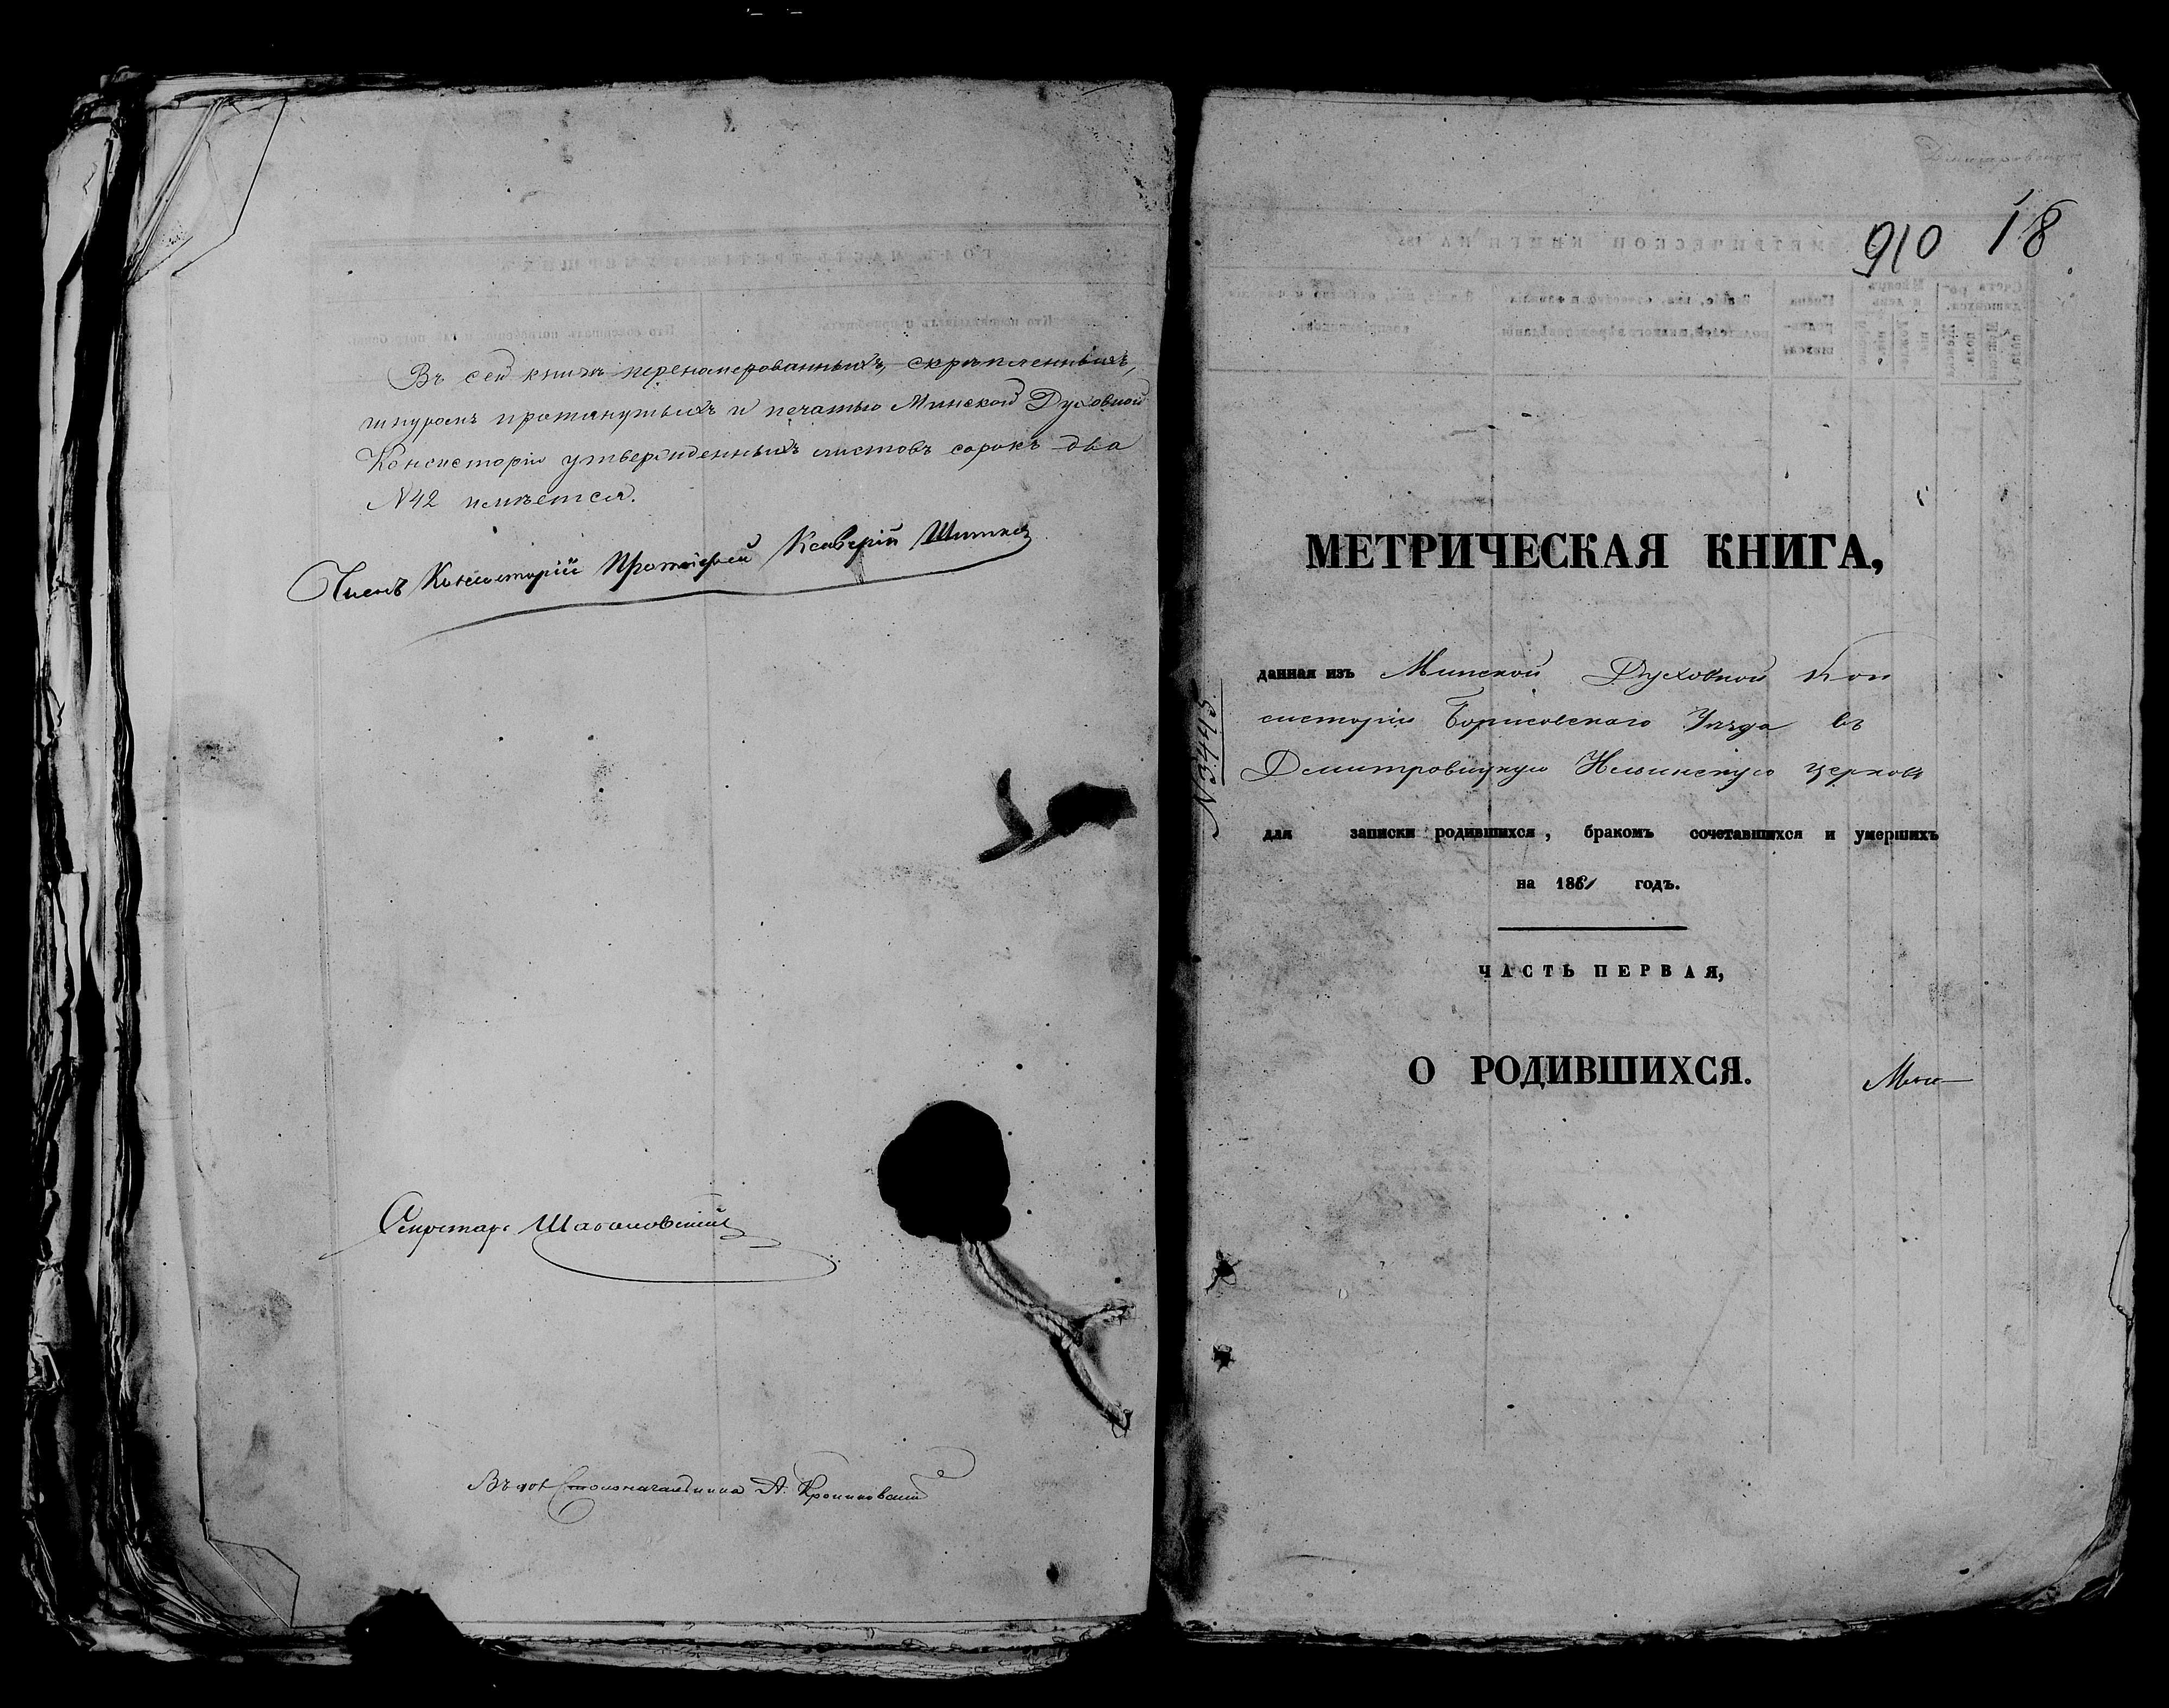 Въ сей книгѣ перенумерованныхъ, скрѣпленныхъ,
шнуромъ протянутыхъ и печатью Минской Духовной
Консисторіи утвержденныхъ листовъ сорокъ два
N 42 имѣется.
Членъ Консисторіи Протоіерей Ксаверій
Секретарь
Столоначальника А.
910 18
МЕТРИЧЕСКАЯ КНИГА,
данная изъ Минской Духовной Кон
систоріи Борисовскаго Уѣзда въ
Дмитровицкую Ильинскую церковь
N 3445
для записки родившихся, бракомъ сочетавшихся и умершихъ
на 1861 годъ.
ЧАСТЬ ПЕРВАЯ,
О РОДИВШИХСЯ.